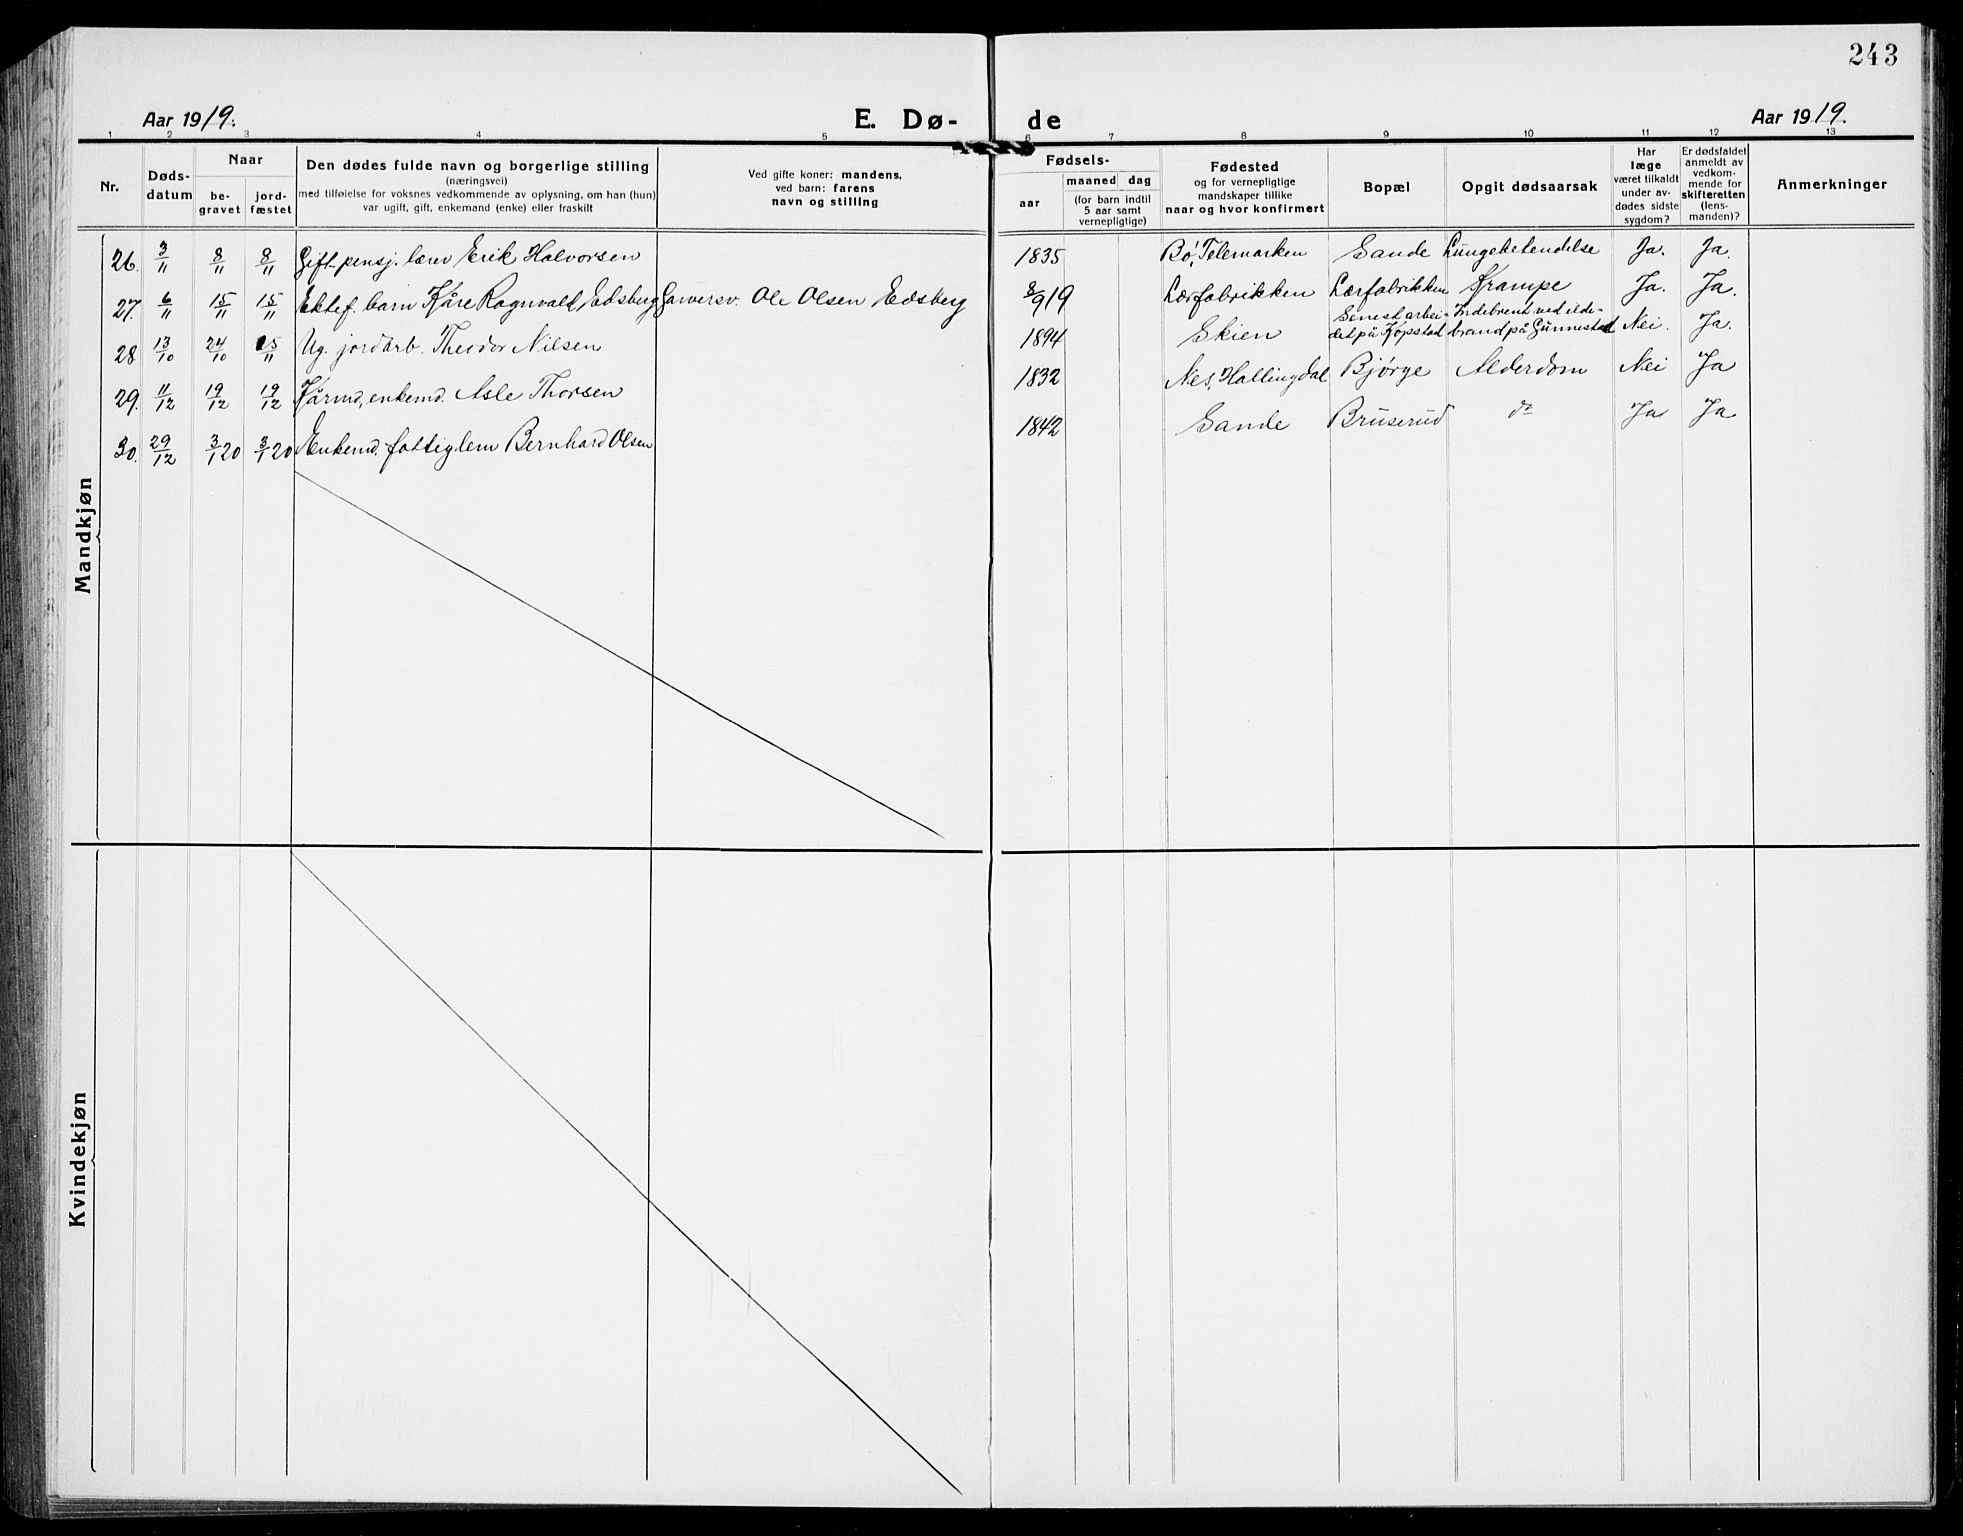 243
Aar 1919.
E. Dø-
de
Aar 1919.
1 2 3 4 5 6 7 8 9 10 11 12 13
Nr.
Døds-
datum
Naar
be-
gravet
jord-
fæstet
Den dødes fulde navn og borgerlige stilling
(næringsvei)
med tilføielse for voksnes vedkommende av oplysning, om han (hun)
var ugift, gift, enkemand (enke) eller fraskilt
Ved gifte koner: mandens,
ved barn: farens
navn og stilling
Fødsels-
aar
maaned dag
(for barn indtil
5 aar samt
vernepligtige)
Fødested
og for vernepligtige
mandskaper tillike
naar og hvor konfirmert
Bopæl
Opgit dødsaarsak
Har
læge
været tilkaldt
under av-
dødes sidste
sygdom?
Er dødsfaldet
anmeldt av
vedkom-
mende for
skifteretten
(lens-
manden)?
Anmerkninger
Mandkjøn
26. 3/11 8/11 8/11 Gift pensj. lærer Erik Halvorsen 1835 Bø, Telemarken Sande Lungebetendelse Ja. Ja.
27. 6/11 15/11 15/11 Ektef. barn Kåre Ragnvald Edsberg Garversv. Ole Olsen Edsberg 8/9 19 Lærfabrikken Lærfabrikken Krampe Ja. Ja.
28 13/10 24/10 15/11 Ug. jordarb. Theodor Nilsen 1894 Skien Senest arbei- Indebrent ved ilde- Nei. Ja.
det på Kopstad brand på Gunnestad
29. 11/12 19/12 19/12 Kårmd, enkemd. Asle Thorsen 1832 Nes, Hallingdal Bjørge Alderdom Nei Ja
30. 29/12 3/1 20 3/1 20 Enkemd, fattiglem Bernhard Olsen 1842 Sande Bruserud do Ja Ja
Kvindekjøn